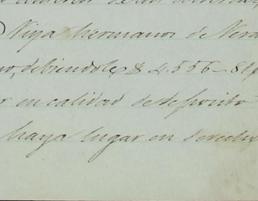 Viya hermanos de Vera
debiendole $ 4.556-81
en calidad de deposito
haya lugar en derecho